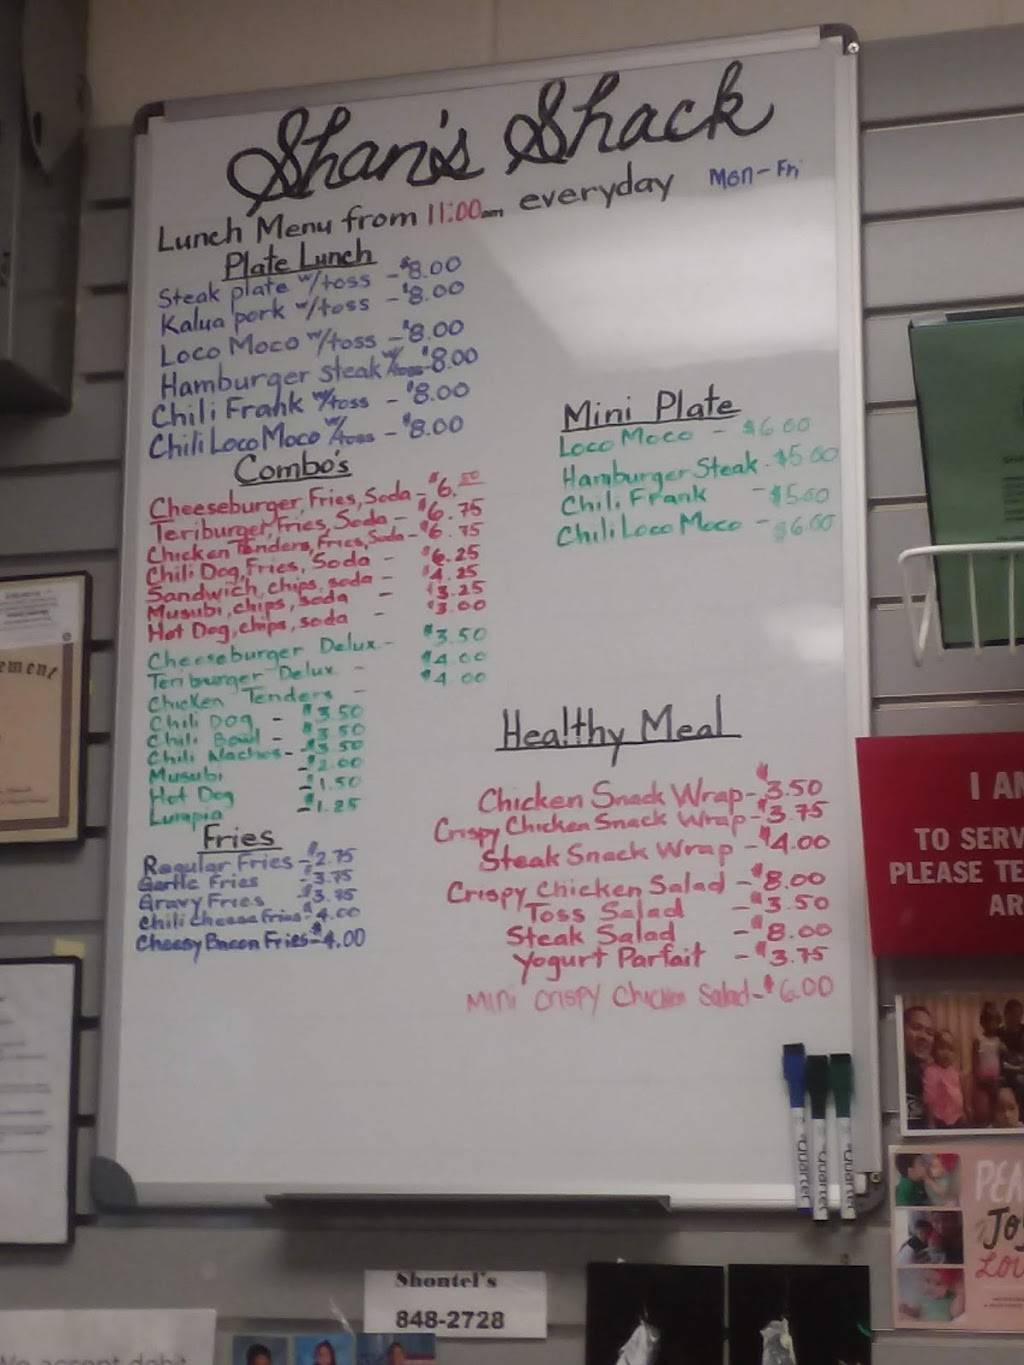 Shan's Shack
Lunch Menu from 11:00am everyday Mon-Fri
Plate Lunch
Steak plate w/toss - $8.00
Kalua pork w/toss - $8.00
Loco Moco w/toss - $8.00
Hamburger steak w/toss - $8.00
Chili Frank w/toss - $8.00
Chili Loco Moco w/toss - $8.00
Combo's
Cheeseburger, Fries, Soda - $6.50
Teriburger, Fries, Soda - $6.75
Chicken Tenders, Fries, Soda - $6.75
Chili Dog, Fries, Soda - $6.25
Sandwich, chips, soda - $4.25
Musubi, chips, soda - $3.25
Hot Dog, chips, soda - $3.00
Cheeseburger Delux - $3.50
Teriburger Delux - $4.00
Chicken Tenders - $4.00
Chili Dog - $3.50
Chili Bowl - $3.50
Chili Nachos - $3.50
Musubi - $2.00
Hot Dog - $1.50
Lumpia - $1.25
Fries
Regular Fries - $2.75
Garlic Fries - $3.75
Gravy Fries - $3.75
Chili Cheese Fries - $4.00
Cheesy Bacon Fries - $4.00
Mini Plate
Loco Moco - $6.00
Hamburger Steak - $5.00
Chili Frank - $5.00
Chili Loco Moco - $6.00
Healthy Meal
Chicken Snack Wrap - $3.50
Crispy Chicken Snack Wrap - $3.75
Steak Snack Wrap - $4.00
Crispy Chicken Salad - $8.00
Toss Salad - $3.50
Steak Salad - $8.00
Yogurt Parfait - $3.75
Mini Crispy Chicken Salad - $6.00
Quartet
Quartet
Quartet
ement
I AM
TO SERV
PLEASE TE
AR
PEA
JO
LOV
Shontel's
848-2728
No accept debit